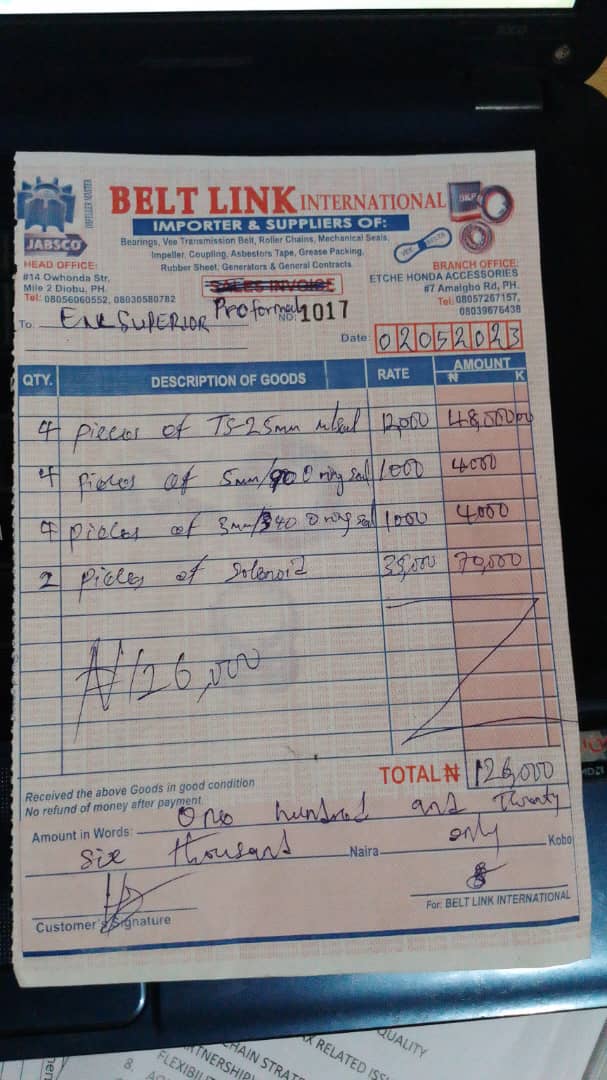 IMPELLER MASTER
JABSCO
BELT LINK INTERNATIONAL
IMPORTER & SUPPLIERS OF:
Bearings, Vee Transmission Belt, Roller Chains, Mechanical Seals,
Impeller, Coupling, Asbestors Tape, Grease Packing,
Rubber Sheet, Generators & General Contracts
VEE DELTA
HEAD OFFICE:
#14 Owhonda Str,
Mile 2 Diobu, PH.
Tel: 08056060552, 08030580782
BRANCH OFFICE:
ETCHE HONDA ACCESSORIES
#7 Amaigbo Rd, PH.
Tel: 08057267157,
08039676438
SALES INVOICE
Proformal
NO: 1017
To SUPERIOR
Date: 02052023
QTY. DESCRIPTION OF GOODS RATE AMOUNT
₦ K
4 pieces of TS-25mm 12,000 48,000
4 pieces of 5mm/90 O ring seal 1000 4000
4 pieces of 3mm/340 O ring seal 1000 4000
2 pieces of Solenoid 35,000 70,000
₦126,000
TOTAL ₦ 126,000
Received the above Goods in good condition
No refund of money after payment
Amount in Words: One hundred and Twenty
six thousand Naira only Kobo
Customer's Signature
For: BELT LINK INTERNATIONAL
QUALITY
X RELATED ISS
CHAIN STRAT
RTNERSHIP
FLEXIBILI
8.